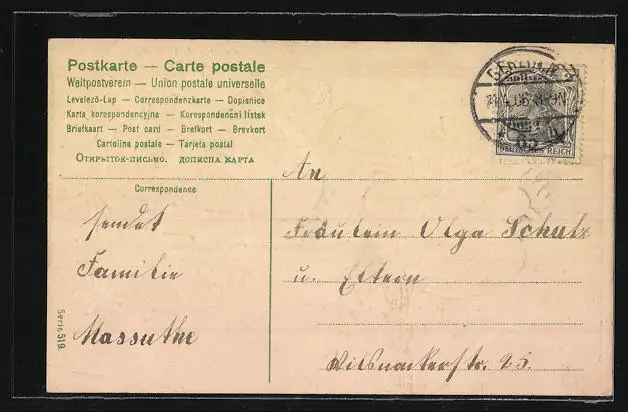 Postkarte — Carte postale
Weltpostverein — Union postale universelle
Levelezö-Lap — Correspondenzkarte — Dopisnice
Karta korespondencyjna — Korespondenční lístek
Briefkaart — Post card — Brefkort — Brevkort
Cartolina postale — Tarjeta postal
Открытое-письмо. дописна карта
Correspondence
sendet
Familie
Massuthe
Serie 519.
BERLIN
8-9N
65
DEUTSCHES REICH
An
Fräulein Olga Schulz
u. Eltern
Wilsnackerstr. 25.